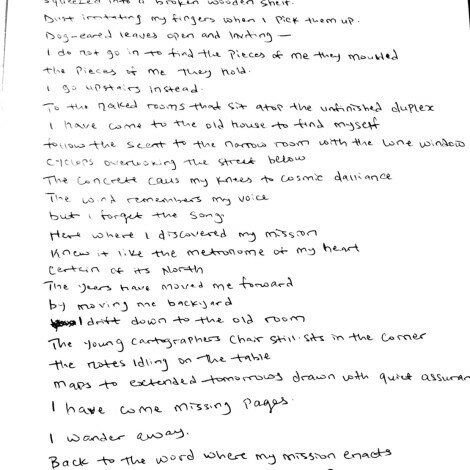 squeezed into a broken wooden shelf.
Dust irritating my fingers when I pick them up.
Dog-eared leaves open and inviting —
I do not go in to find the pieces of me they moulded
the pieces of me they hold.
I go upstairs instead.
To the naked rooms that sit atop the unfinished duplex
I have come to the old house to find myself
follow the scent to the narrow room with the lone window
cyclops overlooking the street below
The concrete calls my knees to cosmic dalliance
The wind remembers my voice
but I forget the song.
Here where I discovered my mission
Knew it like the metronome of my heart
certain of its North
The years have moved me forward
by moving me backyard
I drift down to the old room
The young cartographers chair still sits in the corner
the notes idling on the table
maps to extended tomorrows drawn with quiet assuran
I have come missing pages.
I wander away.
Back to the word where my mission enacts